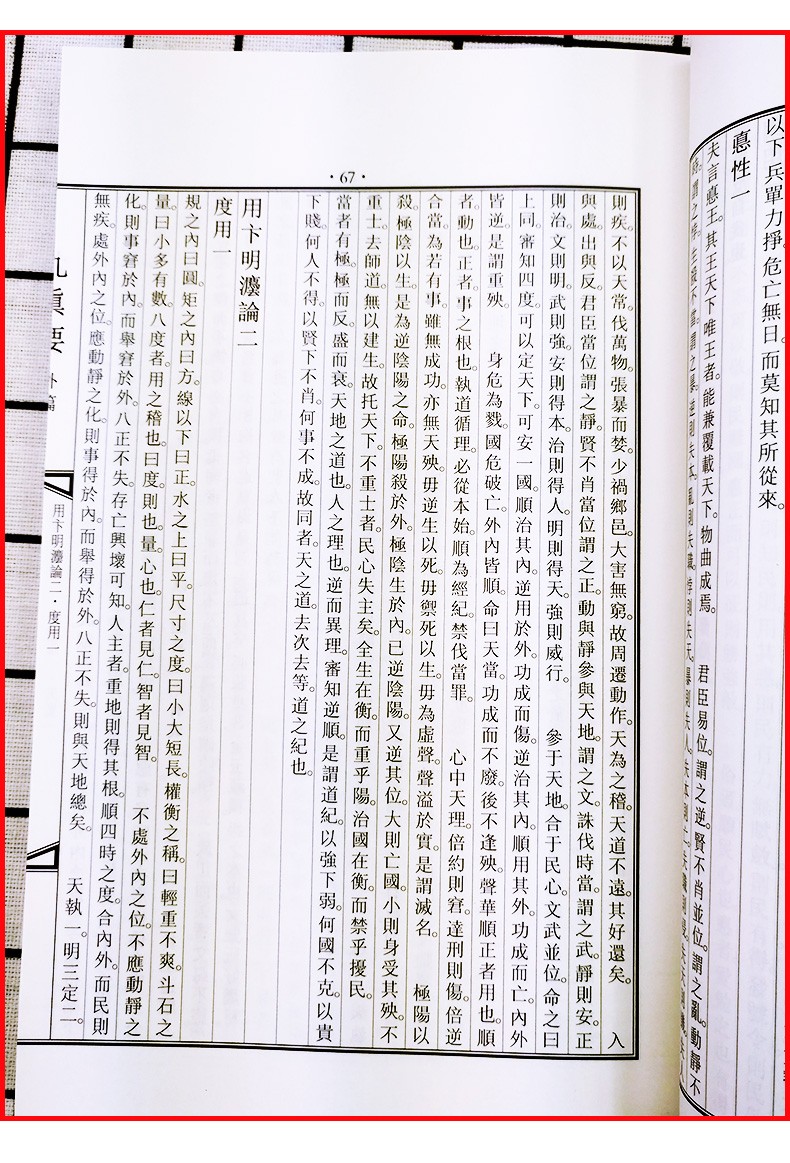 以下兵單力掙。危亡無日。而莫知其所從來。
惪性一
夫言惪王。其王天下唯王者。能兼覆載天下。物曲成焉。 君臣易位。謂之逆。賢不肖並位。謂之亂。動靜不
生殺不當。謂之暴。逆則失本。亂則失職。
67
則疾。不以天常。伐萬物。張暴而婪。少禍鄉邑。大害無窮。故周遷動作。天為之稽。天道不遠。其好還矣。 入
與處。出與反。君臣當位謂之靜。賢不肖當位謂之正。動與靜參與天地。謂之文。誅伐時當。謂之武。靜則安。正
則治。文則明。武則強。安則得本。治則得人。明則得天。強則威行。 參于天地。合于民心。文武並位。命之曰
上同。審知四度。可以定天下。可安一國。順治其內。逆用於外。功成而傷。逆治其內。順用其外。功成而亡。內外
皆逆。是謂重殃。 身危為戮。國危破亡。外內皆順。命曰天當。功成而不廢。後不逢殃。聲華順正者。用也。順
者。動也。正者。事之根也。執道循理。必從本始。順為經紀。禁伐當罪。 心中天理。倍約則窘。達刑則傷。倍逆
合當。為若有事。雖無成功。亦無天殃。毋逆生以死。毋禦死以生。毋為虛聲。聲溢於實。是謂滅名。 極陽以
殺。極陰以生。是為逆陰陽之命。極陽殺於外。極陰生於內。已逆陰陽。又逆其位。大則亡國。小則身受其殃。不
重士。去師道。無以建生。故托天下。不重士者。民心失主矣。全生在衡。而重乎陽。治國在衡。而禁乎擾民。
當者有極。極而反。盛而衰。天地之道也。人之理也。逆而異理。審知逆順。是謂道紀。以強下弱。何國不克。以貴
下賤。何人不得。以賢下不肖。何事不成。故同者。天之道。去次去等。道之紀也。
用卞明灋論二
度用一
規之內曰圓。矩之內曰方。線以下曰正。水之上曰平。尺寸之度。曰小大短長。權衡之稱。曰輕重不爽。斗石之
量。曰小多有數。八度者。用之稽也。曰度。則也。量。心也。仁者見仁。智者見智。 不處外內之位。不應動靜之
化。則事窘於內。而舉窘於外。八正不失。存亡興壞可知。人主者。重地則得其根。順四時之度。合內外。而民則
無疾。處外內之位。應動靜之化。則事得於內。而舉得於外。八正不失。則與天地總矣。 天執一。明三定二。
外篇
用卞明灋論二·度用一